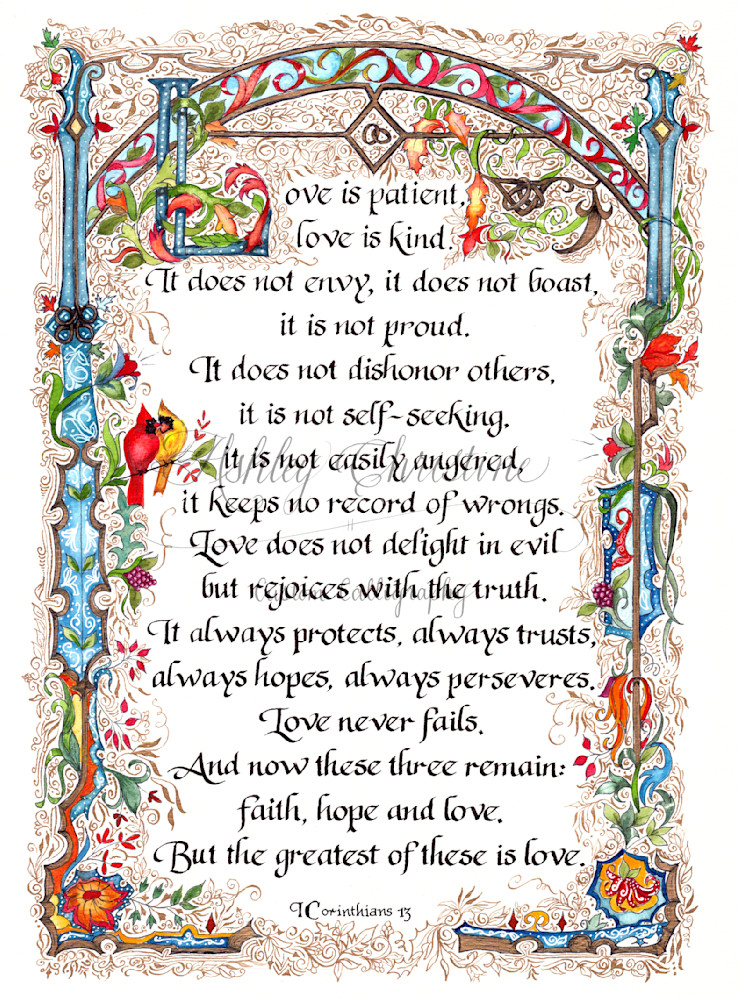 Love is patient,
love is kind.
It does not envy, it does not boast,
it is not proud.
It does not dishonor others,
it is not self-seeking,
it is not easily angered,
Ashley Christine
it keeps no record of wrongs.
Love does not delight in evil
but rejoices with the truth.
Custom Calligraphy
It always protects, always trusts,
always hopes, always perseveres.
Love never fails.
And now these three remain:
faith, hope and love.
But the greatest of these is love.
1 Corinthians 13